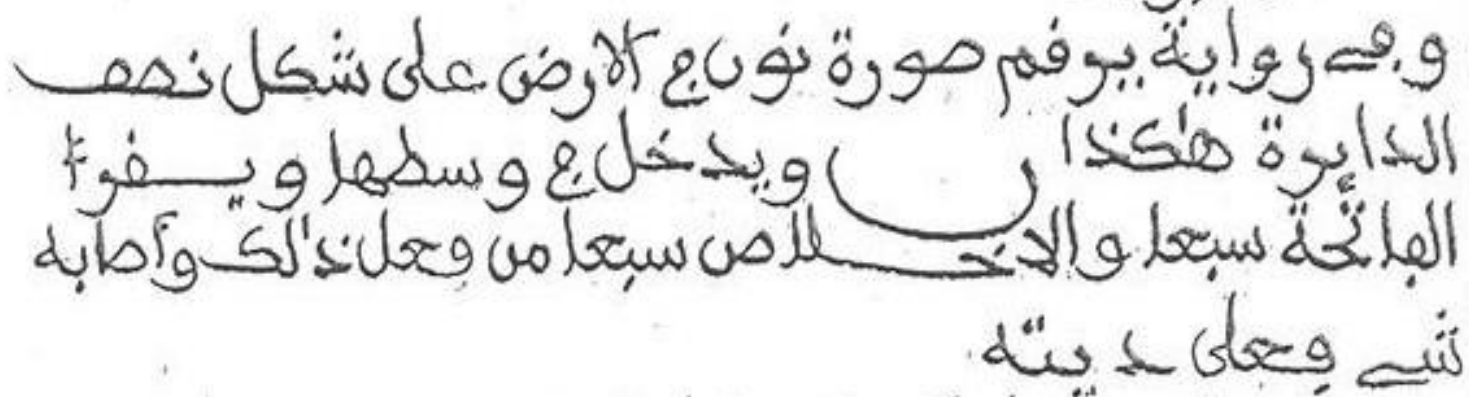 وفي رواية يرقم صورة نون في الارض على شكل نصف
الدايرة هكذا ن ويدخل في وسطها ويقرأ
الفاتحة سبعا والاخلاص سبعا من فعل ذالك وأصابه
شي فعلى ديته